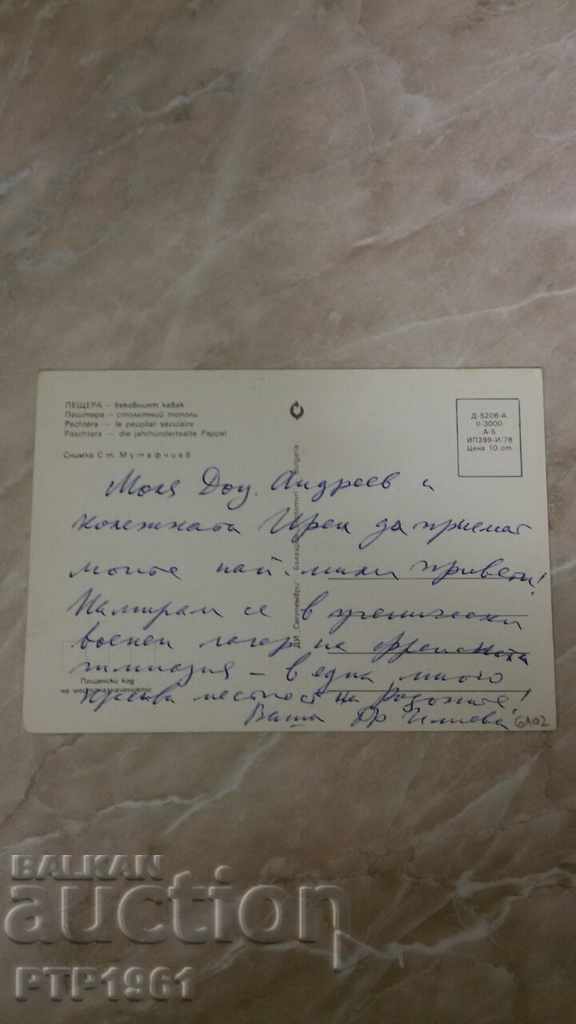 ПЕЩЕРА – вековният кавак
Пештера – столетний тополь
Pechtera – le peuplier séculaire
Peschtera – die jahrhundertealte Pappel
Снимка Ст. Мутафчиев
Д-5206-А
II-3000
А-5
ИП399-И/78
Цена 10 ст.
Моля Доц. Андреев и
колежката Ирен да приемат
моите най-мили привети!
Намирам се в ученически
военен лагер на френската
гимназия – в една много
красива местност на Родопите!
Ваша Др Илиева
6А02
Пощенски код
ДИ „Септември"
BALKAN
auction
PTP1961